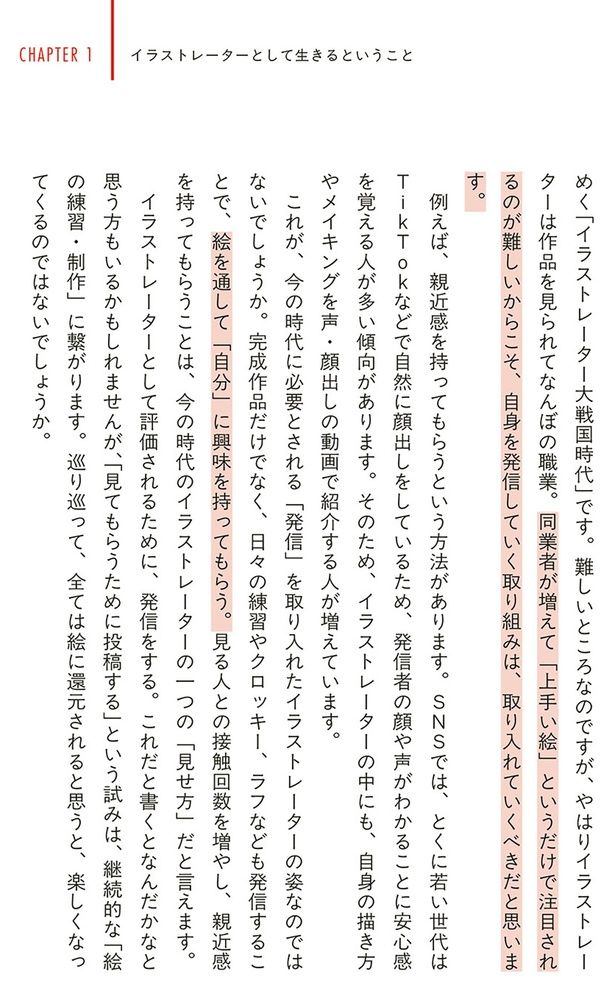 CHAPTER 1
イラストレーターとして生きるということ
めく「イラストレーター大戦国時代」です。難しいところなのですが、やはりイラストレー
ターは作品を見られてなんぼの職業。同業者が増えて「上手い絵」というだけで注目され
るのが難しいからこそ、自身を発信していく取り組みは、取り入れていくべきだと思いま
す。
例えば、親近感を持ってもらうという方法があります。SNSでは、とくに若い世代は
TikTokなどで自然に顔出しをしているため、発信者の顔や声がわかることに安心感
を覚える人が多い傾向があります。そのため、イラストレーターの中にも、自身の描き方
やメイキングを声・顔出しの動画で紹介する人が増えています。
これが、今の時代に必要とされる「発信」を取り入れたイラストレーターの姿なのでは
ないでしょうか。完成作品だけでなく、日々の練習やクロッキー、ラフなども発信するこ
とで、絵を通して「自分」に興味を持ってもらう。見る人との接触回数を増やし、親近感
を持ってもらうことは、今の時代のイラストレーターの一つの「見せ方」だと言えます。
イラストレーターとして評価されるために、発信をする。これだと書くとなんだかなと
思う方もいるかもしれませんが、「見てもらうために投稿する」という試みは、継続的な「絵
の練習・制作」に繋がります。巡り巡って、全ては絵に還元されると思うと、楽しくなっ
てくるのではないでしょうか。